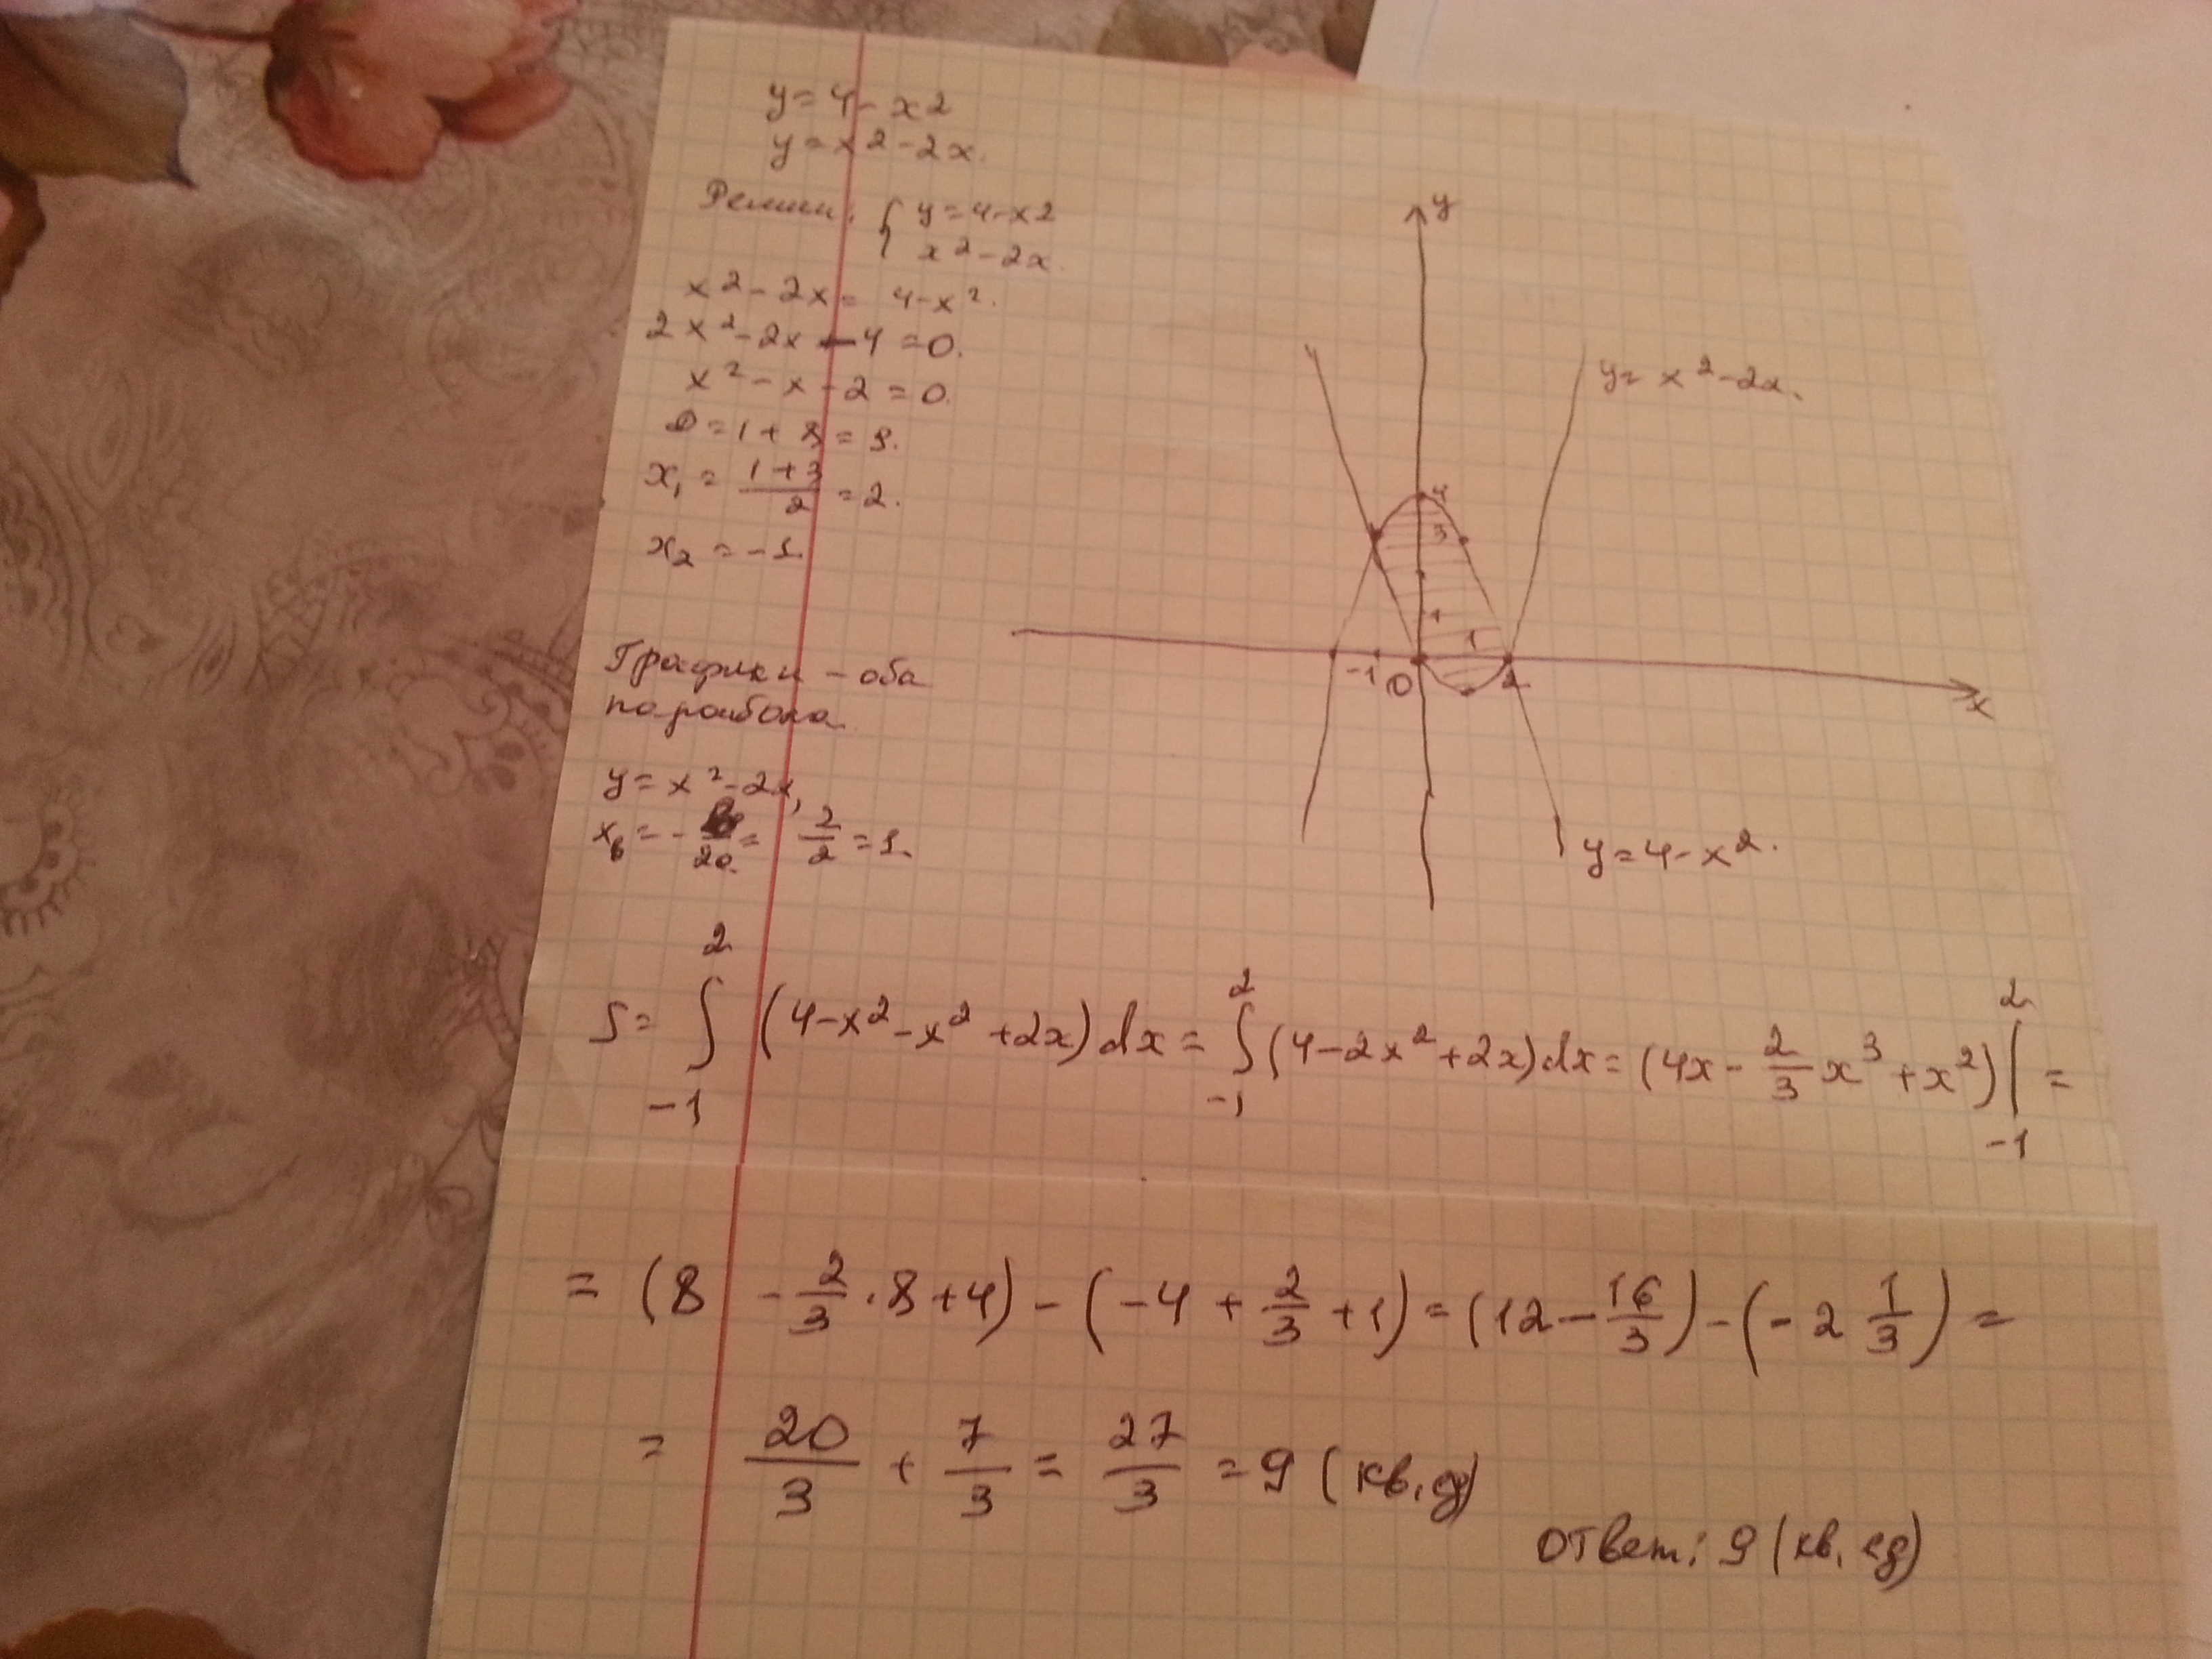 y = 4 - x2
y = x2 - 2x.
Решим: { y = 4 - x2
x2 - 2x.
x2 - 2x = 4 - x².
2x² - 2x - 4 = 0.
x² - x - 2 = 0.
D = 1 + 8 = 9.
x₁ = (1+3)/2 = 2.
x₂ = -1.
Графики - оба
парабола.
y = x² - 2x,
x_в = - /2a = 2/2 = 1.
y
4
3
1
1
-1
0
2
x
y = x2 - 2x.
y = 4 - x2.
S = ∫_{-1}^{2} (4 - x² - x² + 2x)dx = ∫_{-1}^{2} (4 - 2x² + 2x)dx = (4x - 2/3 x³ + x²)|_{-1}^{2} =
= (8 - 2/3 · 8 + 4) - (-4 + 2/3 + 1) = (12 - 16/3) - (-2 1/3) =
= 20/3 + 7/3 = 27/3 = 9 (кв. ед)
Ответ: 9 (кв. ед)